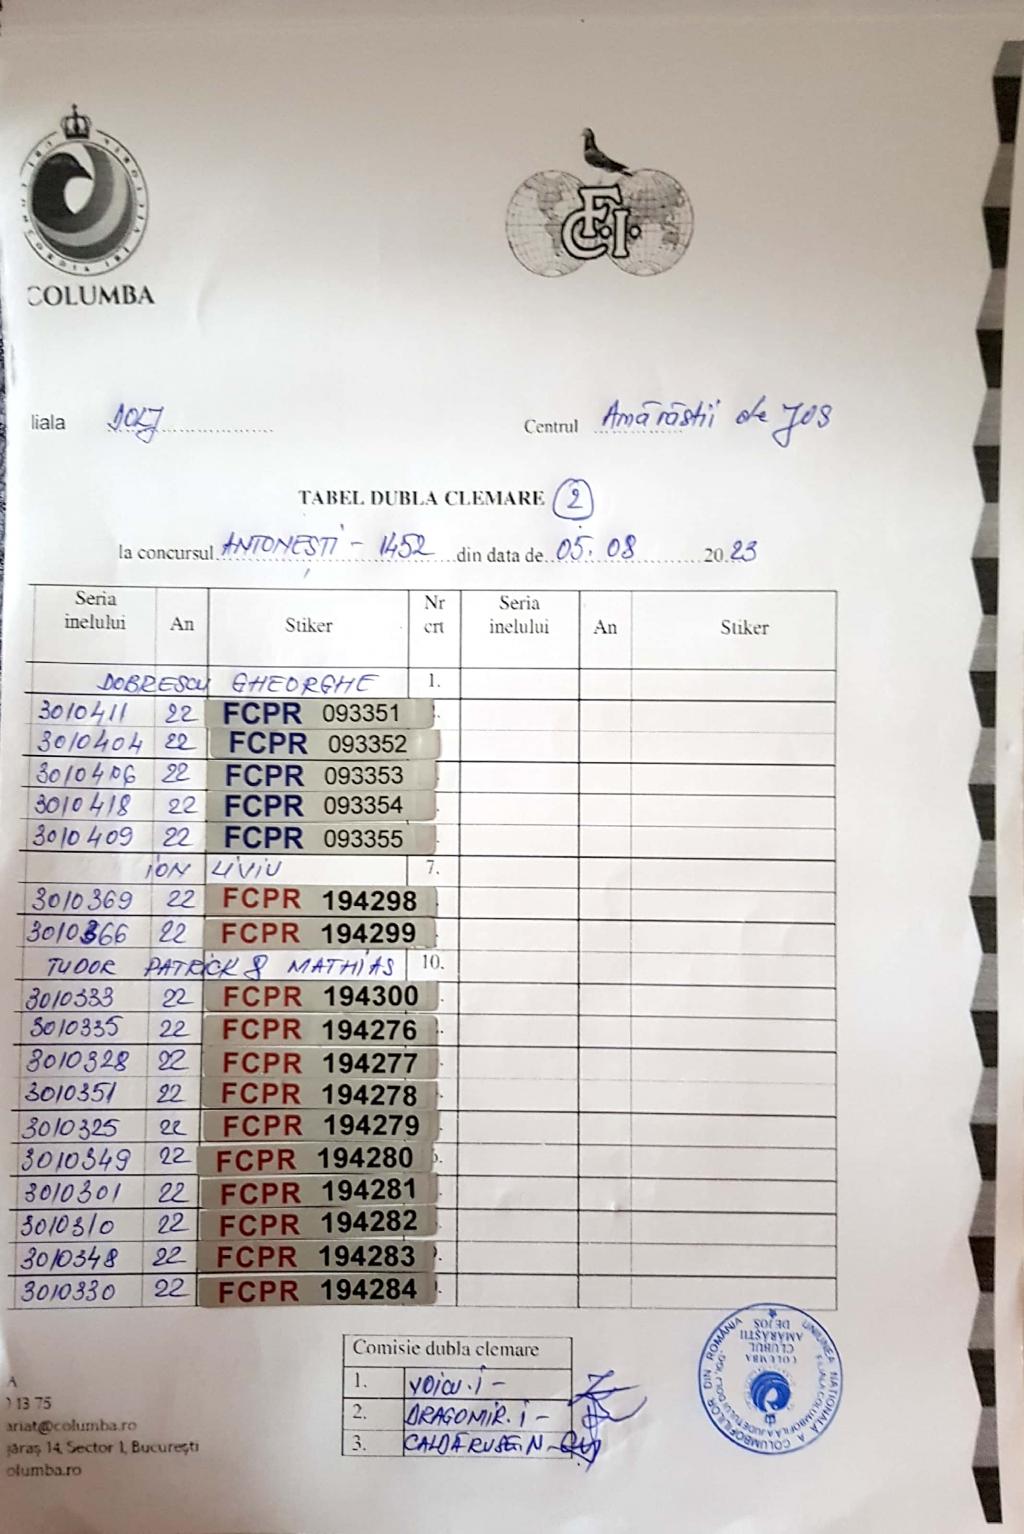 COLUMBA
F.C.I.
liala DOLJ
Centrul Amărăstii de JOS
TABEL DUBLA CLEMARE 2
la concursul ANTONEȘTI - 1452 din data de 05.08 2023
Seria inelului An Stiker Nr crt Seria inelului An Stiker
DOBRESCU GHEORGHE 1.
3010411 22 FCPR 093351
3010404 22 FCPR 093352
3010406 22 FCPR 093353
3010418 22 FCPR 093354
3010409 22 FCPR 093355
ION LIVIU 7.
3010369 22 FCPR 194298
3010366 22 FCPR 194299
TUDOR PATRICK & MATHIAS 10.
3010333 22 FCPR 194300
3010335 22 FCPR 194276
3010328 22 FCPR 194277
3010351 22 FCPR 194278
3010325 22 FCPR 194279
3010349 22 FCPR 194280
3010301 22 FCPR 194281
3010310 22 FCPR 194282
3010348 22 FCPR 194283
3010330 22 FCPR 194284
Comisie dubla clemare
1. VOICU.I -
2. DRAGOMIR.I -
3. CALDĂRUSE IN -
UNIUNEA NATIONALA A COLUMBOFILILOR DIN ROMÂNIA
COLUMBA
CLUBUL
AMARASTII
DE JOS
A
13 75
ariat@columba.ro
jăraș 14, Sector 1, București
olumba.ro